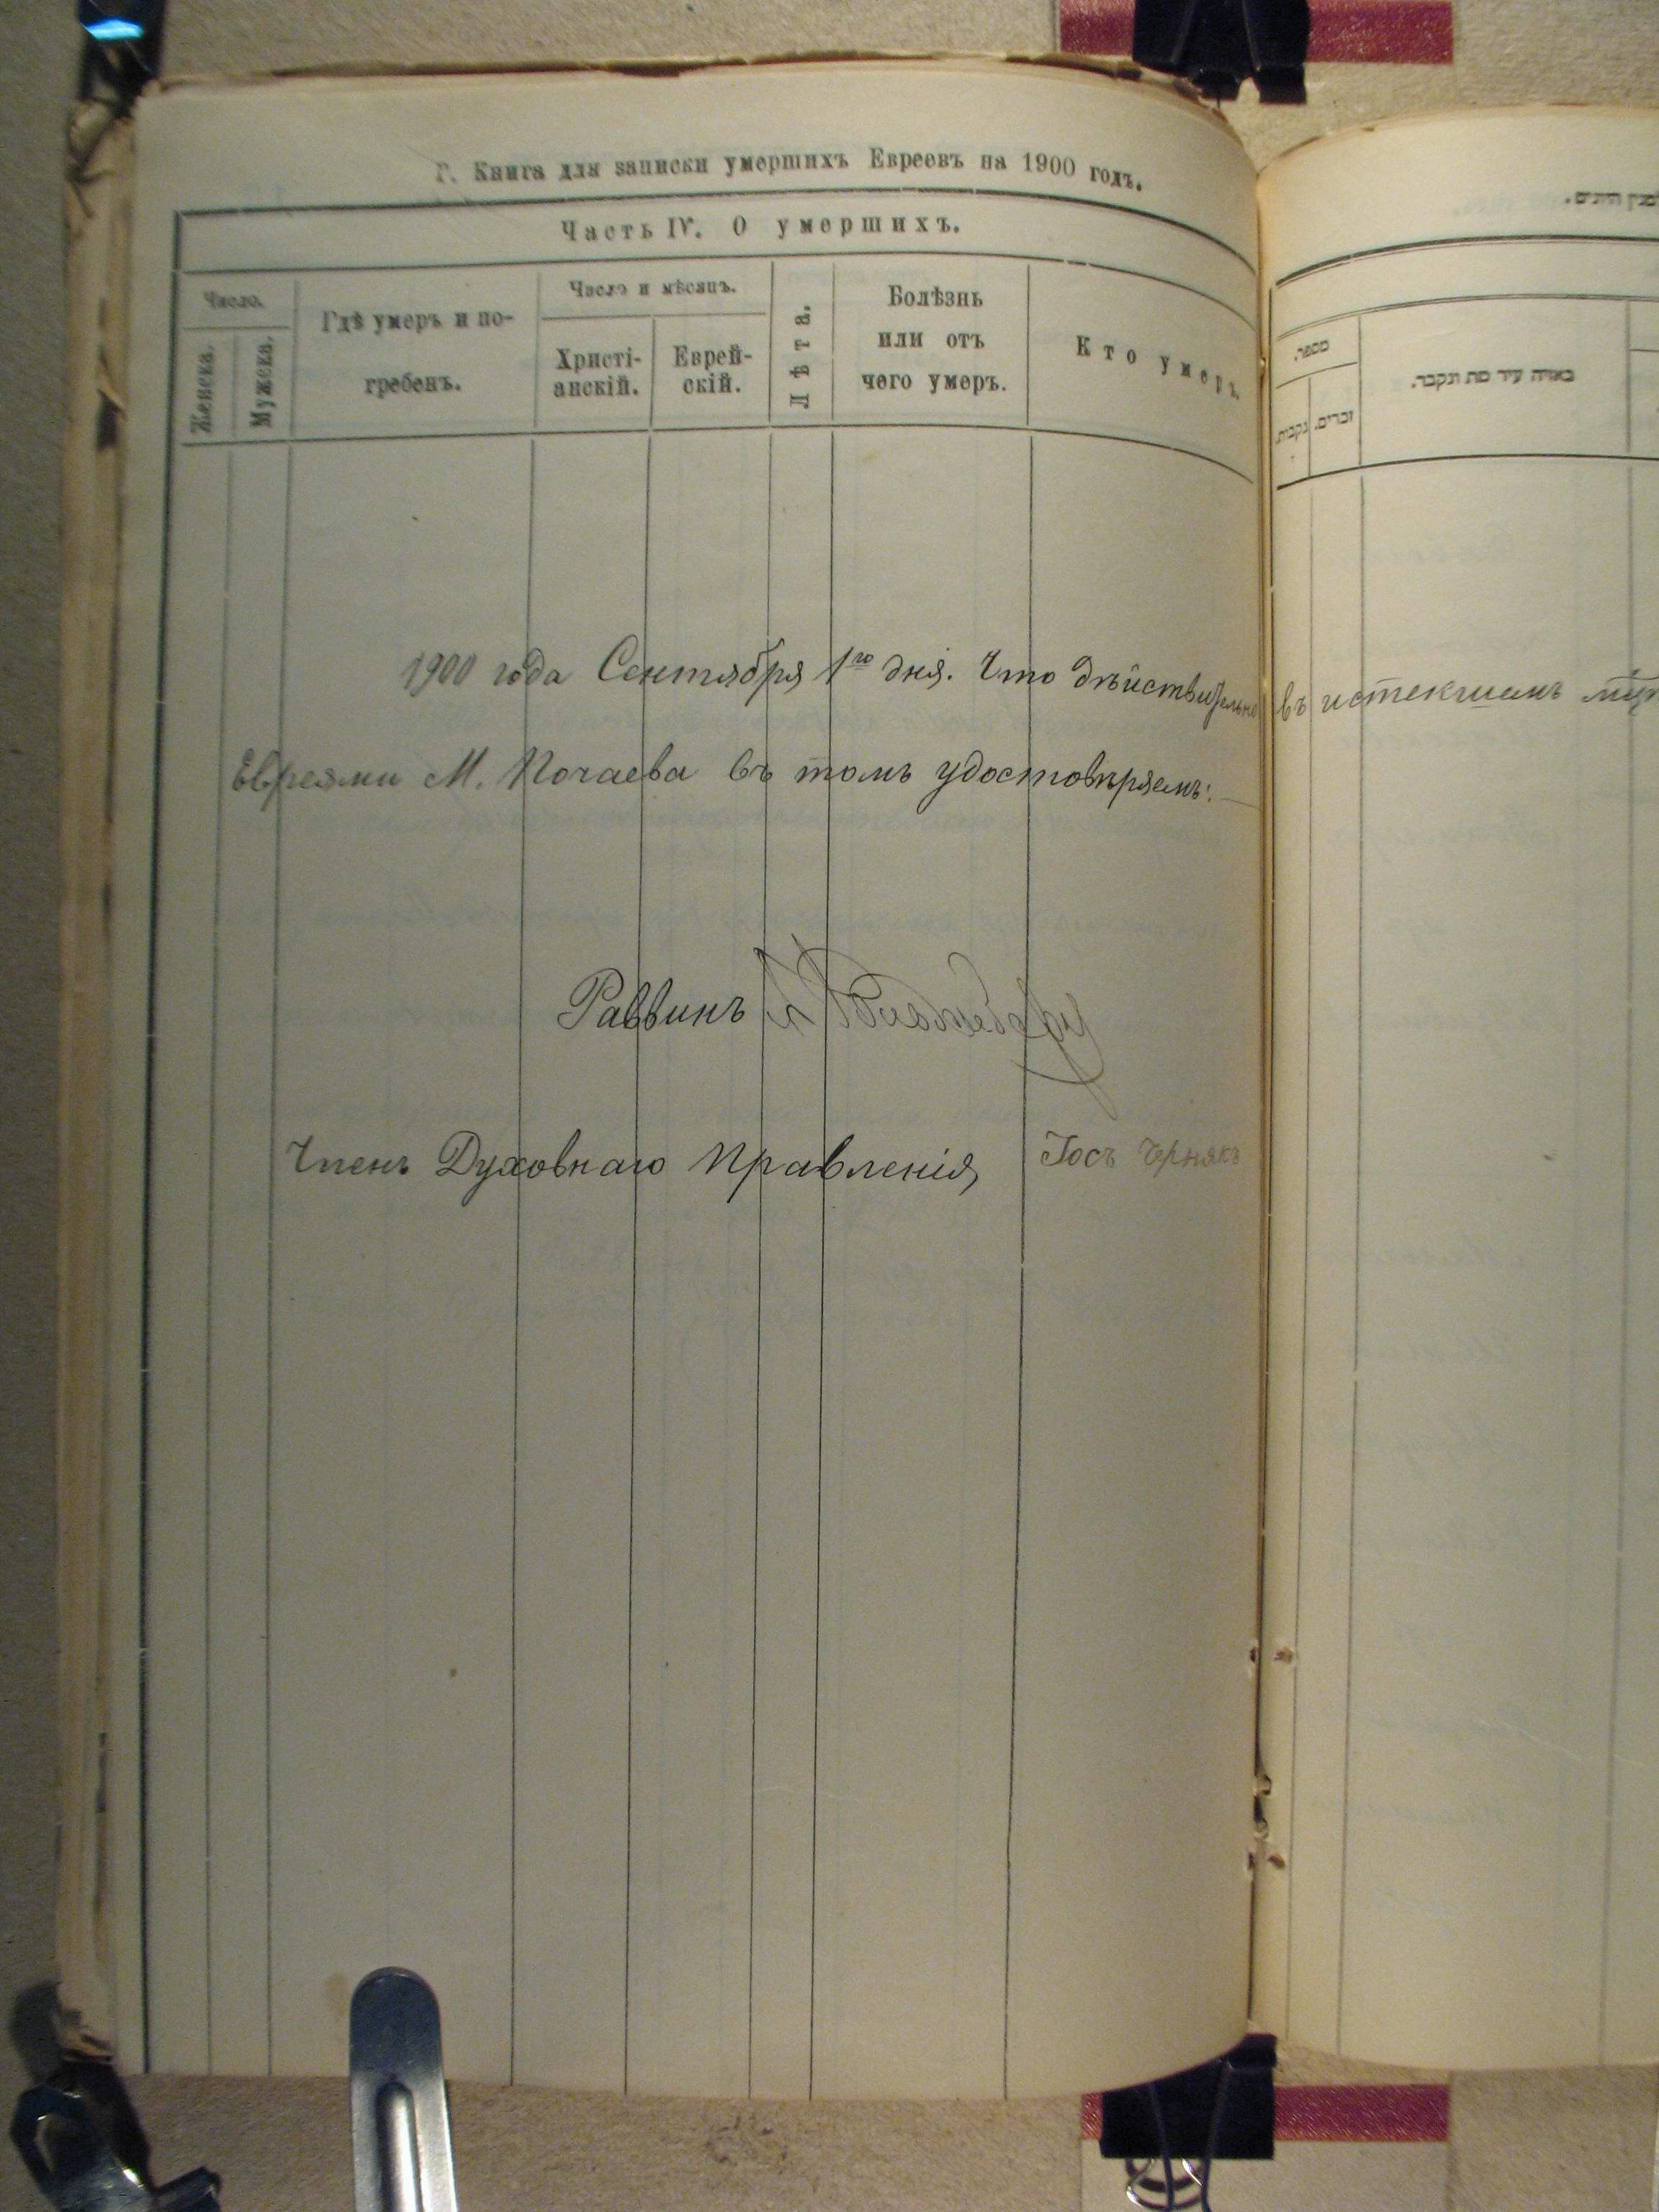 Г. Книга для записки умершихъ Евреевъ на 1900 годъ.
Часть IV. О умершихъ.
Число.
Женска.
Мужеска.
Гдѣ умеръ и по-
гребенъ.
Число и мѣсяцъ.
Христі-
анскій.
Еврей-
скій.
Лѣта.
Болѣзнь
или отъ
чего умеръ.
Кто умеръ.
1900 года Сентября 1го дня. Что дѣйствительно въ истекшемъ
Евреями М. Почаева въ томъ удостовѣряемъ:
Раввинъ
Членъ Духовнаго Правленія Іосъ Чернякъ
מספר.
נקבות.
זכרים.
באיזה עיר מת ונקבר.